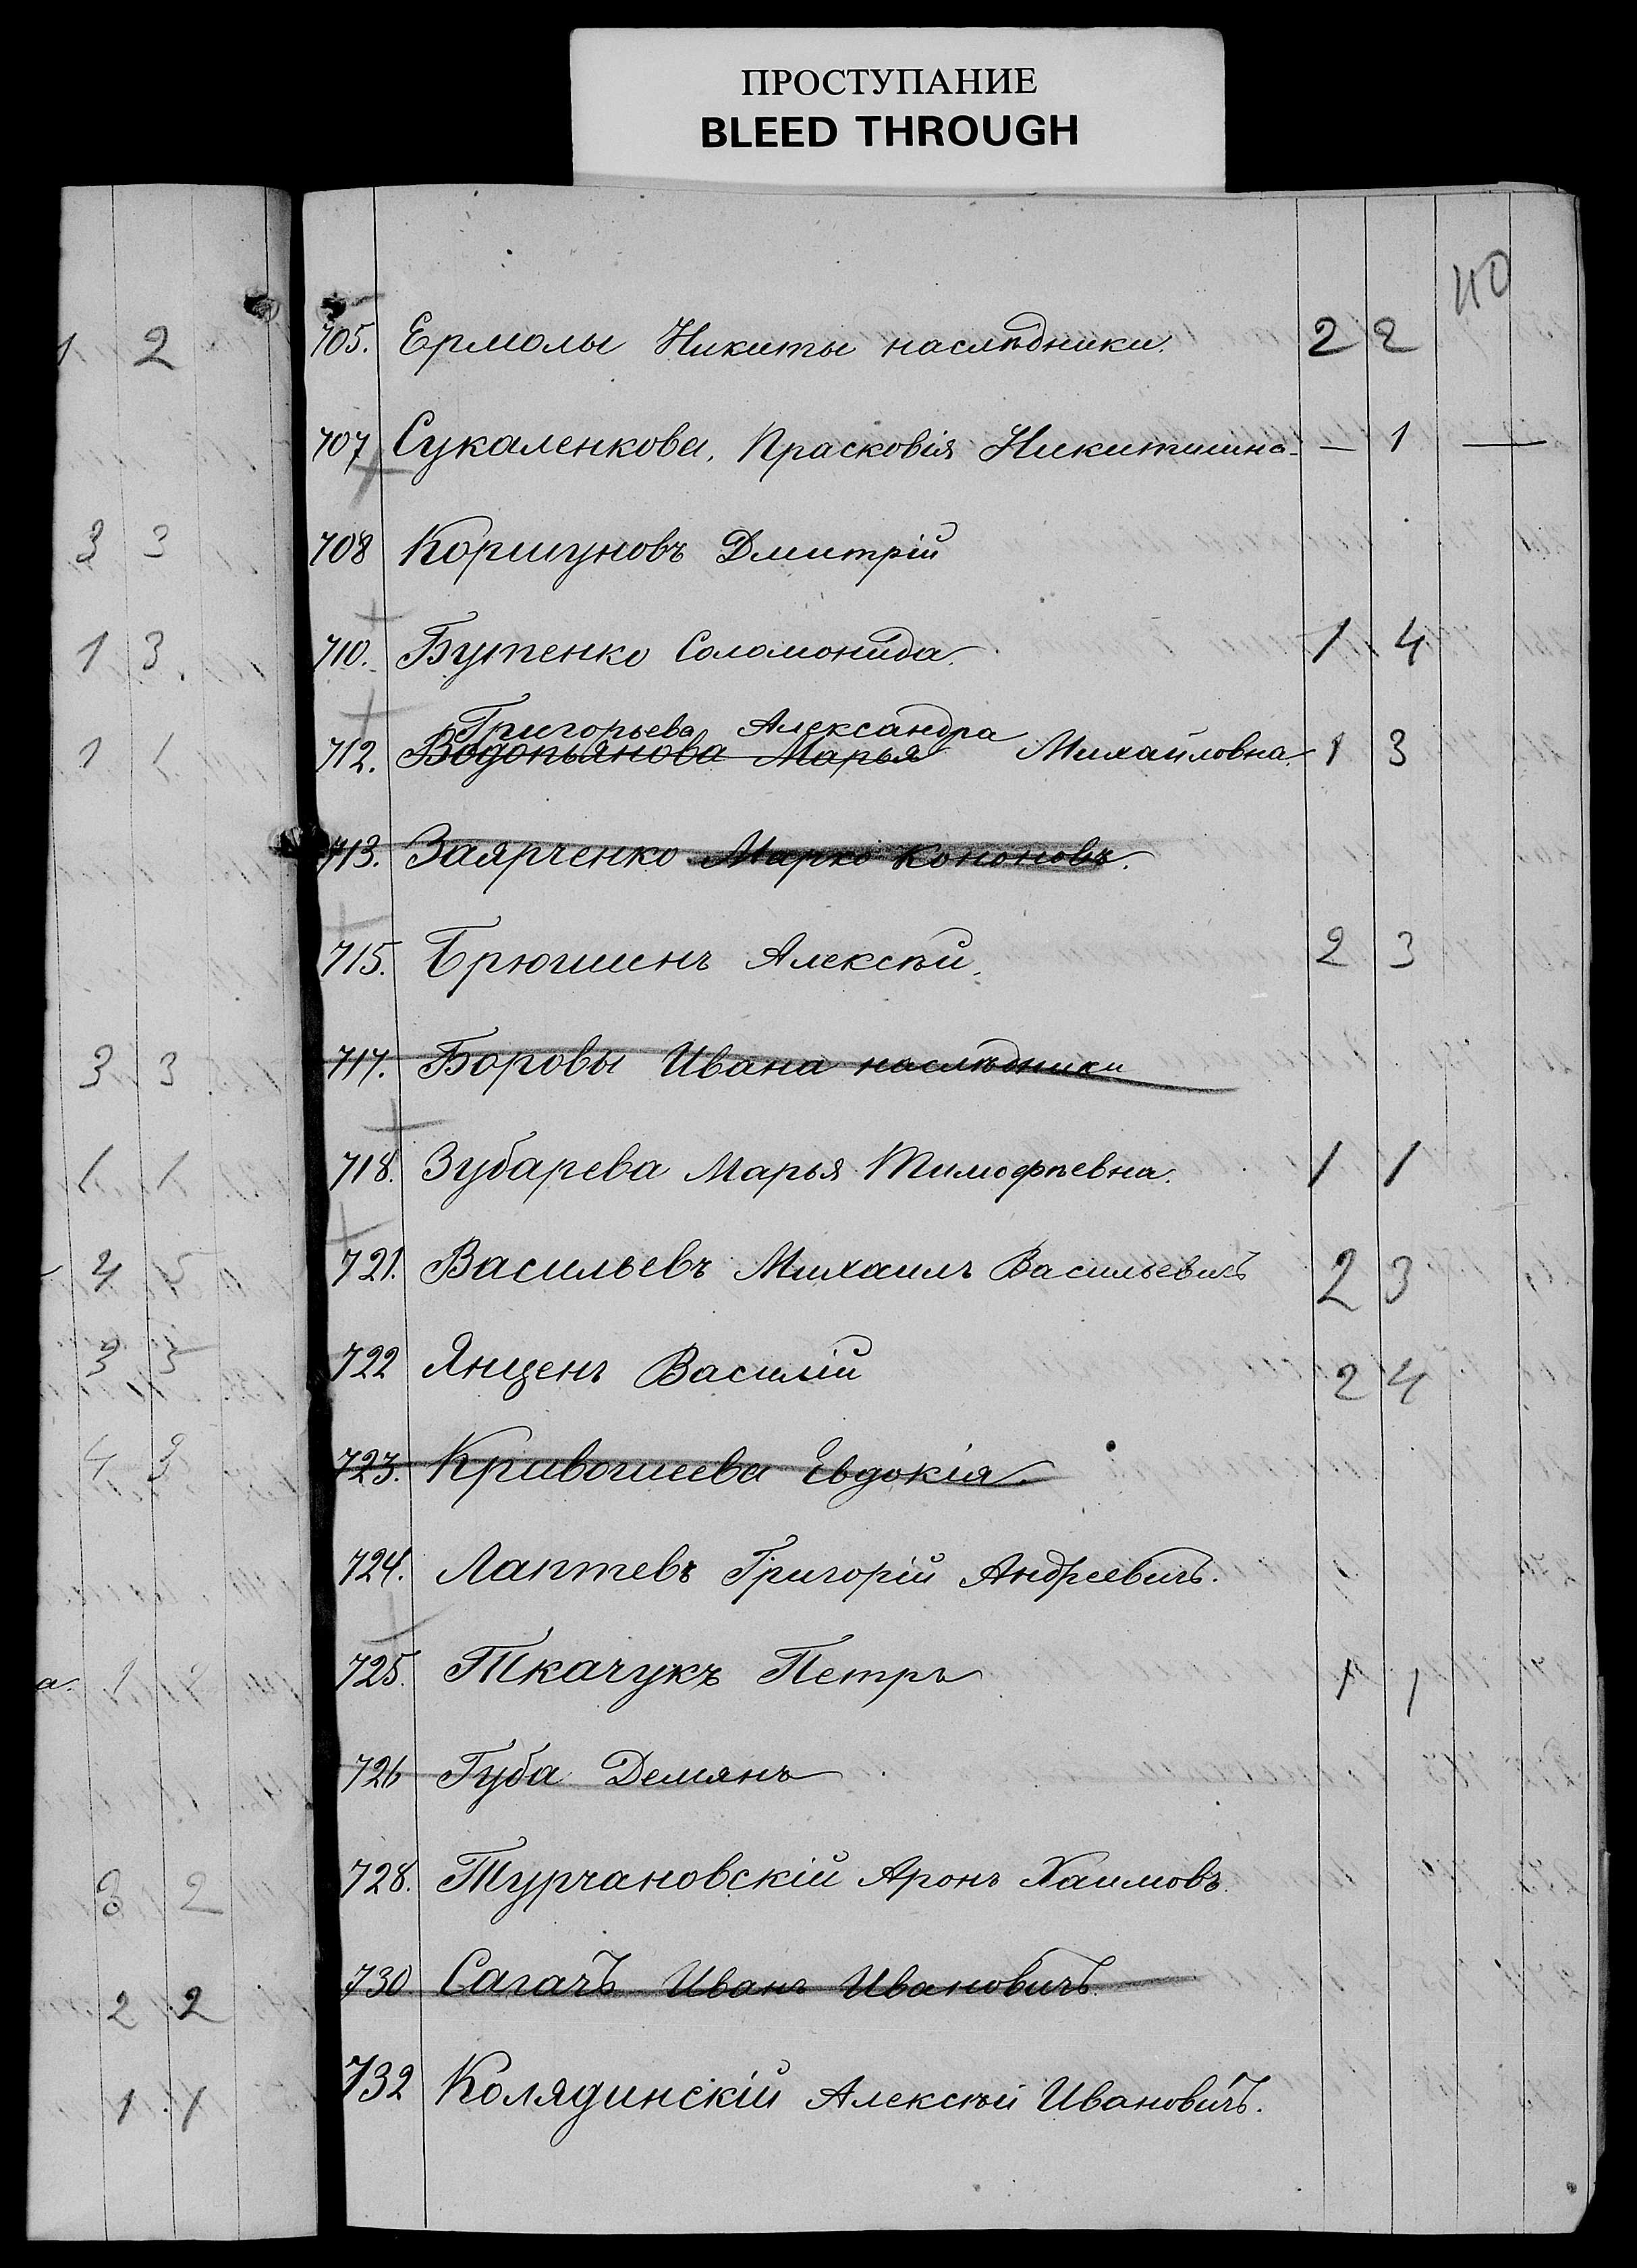 ПРОСТУПАНИЕ
BLEED THROUGH
110
1 2
705. Ермолы Никиты наслѣдники. 2 2
707 Сукаленкова, Прасковія Никитишна. — 1 —
3 3
708 Коршуновъ Дмитрій
1 3
710. Бутенко Соломонида. 1 4
Григорьева Александра
1 1
712. Водопьянова Марья Михайловна. 1 3
713. Заярченко Марко Кононовъ.
715. Брюшинъ Алексѣй. 2 3
3 3
717. Боровы Ивана наслѣдники
1 1
718. Зубарева Марья Тимофѣевна. 1 1
4 5
721. Васильевъ Михаилъ Васильевичъ 2 3
3 3
722 Янценъ Василій 2 4
4 3
723. Кривошеева Евдокія.
724. Лаптевъ Григорій Андреевичъ.
725. Ткачукъ Петръ 1 1
726 Губа Демянъ
3 2
728. Турчановскій Аронъ Хаимовъ.
2 2
730 Сагачъ Иванъ Ивановичъ.
1 1
732 Колядинскій Алексѣй Ивановичъ.